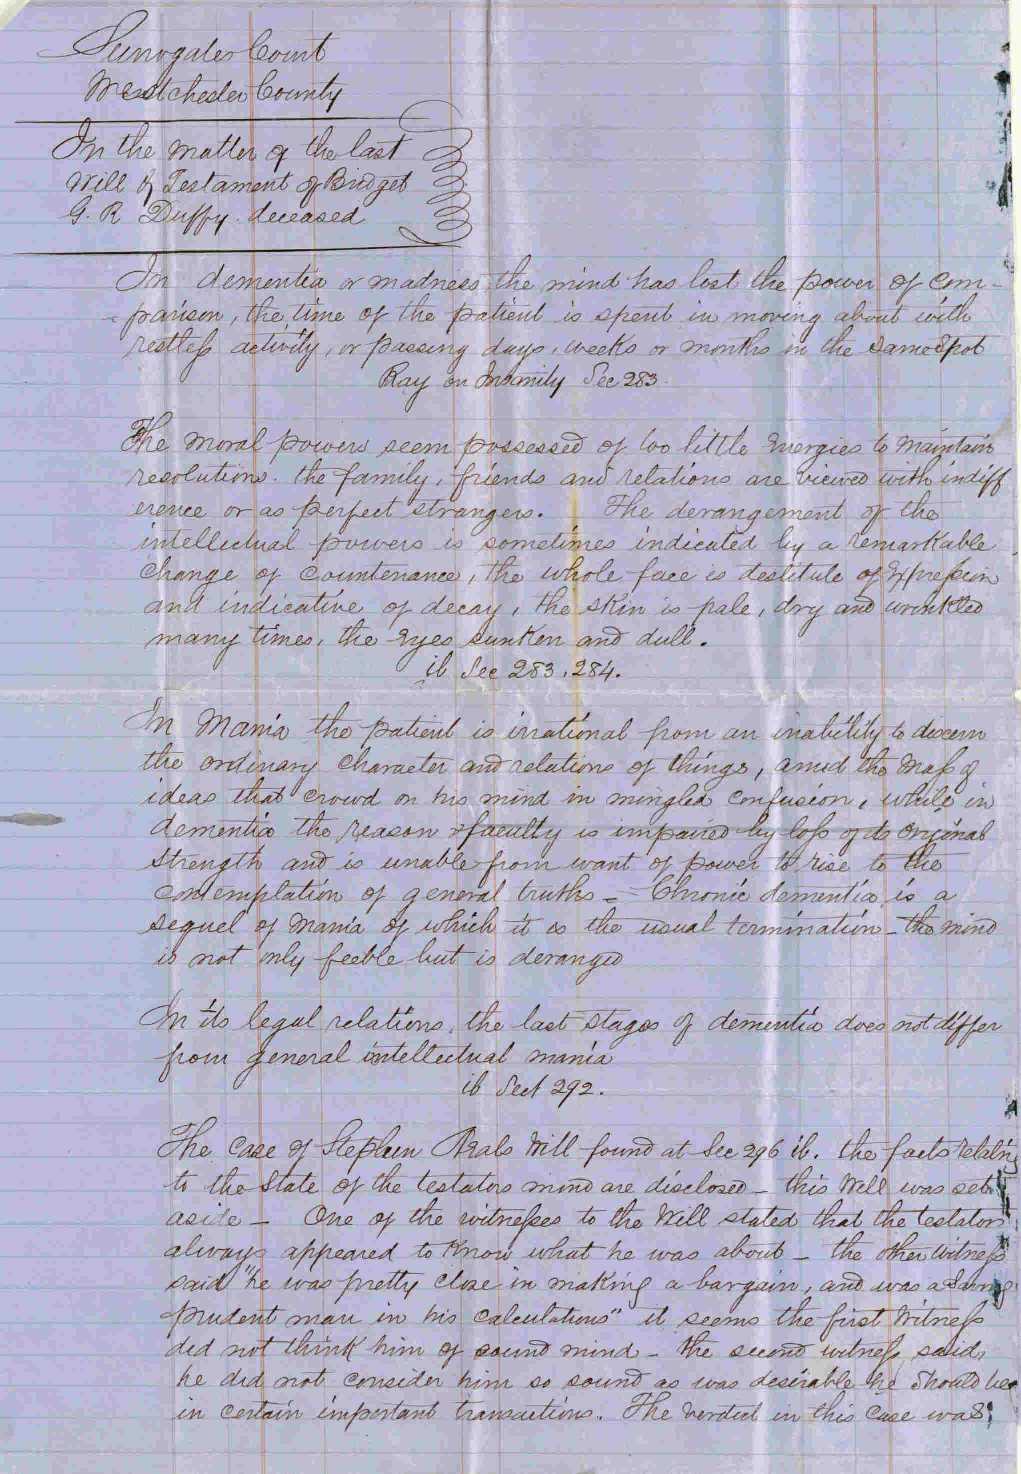 Surrogates Court
Westchester County
In the matter of the last
Will & Testament of Bridget
G. R Duffy deceased
In dementia or madness the mind has lost the power of com-
parison, the time of the patient is spent in moving about with
restless activity, or passing days, weeks or months in the same spot
Ray on Insanity Sec 283.
The moral powers seem possessed of too little Energies to maintain
resolutions. the family, friends and relations are viewed with indiff
erence or as perfect strangers. The derangement of the
intellectual powers is sometimes indicated by a remarkable
change of countenance, the whole face is destitute of Expression
and indicative of decay, the skin is pale, dry and wrinkled
many times, the Eyes sunken and dull.
ib Sec 283, 284.
In Mania the patient is irrational from an inability to discern
the ordinary character and relations of things, amid the Mass of
ideas that crowd on his mind in mingled confusion, while in
dementia the reason faculty is impaired by loss of its original
strength and is unable from want of power to rise to the
contemplation of general truths - Chronic dementia is a
sequel of Mania of which it is the usual termination - the mind
is not only feeble but is deranged
In its legal relations, the last stages of dementia does not differ
from general intellectual mania
ib Sect 292.
The Case of Stephen Will found at Sec 296 ib. the facts relatin
to the State of the testators mind are disclosed - this Will was set
aside - One of the witnesses to the Will stated that the testator
always appeared to Know what he was about - the other Witness
said "he was pretty close in making a bargain, and was a
prudent man in his calculations" it seems the first Witness
did not think him of sound mind - the second witness said,
he did not consider him so sound as was desirable he should be
in certain important transactions. The verdict in this Case was